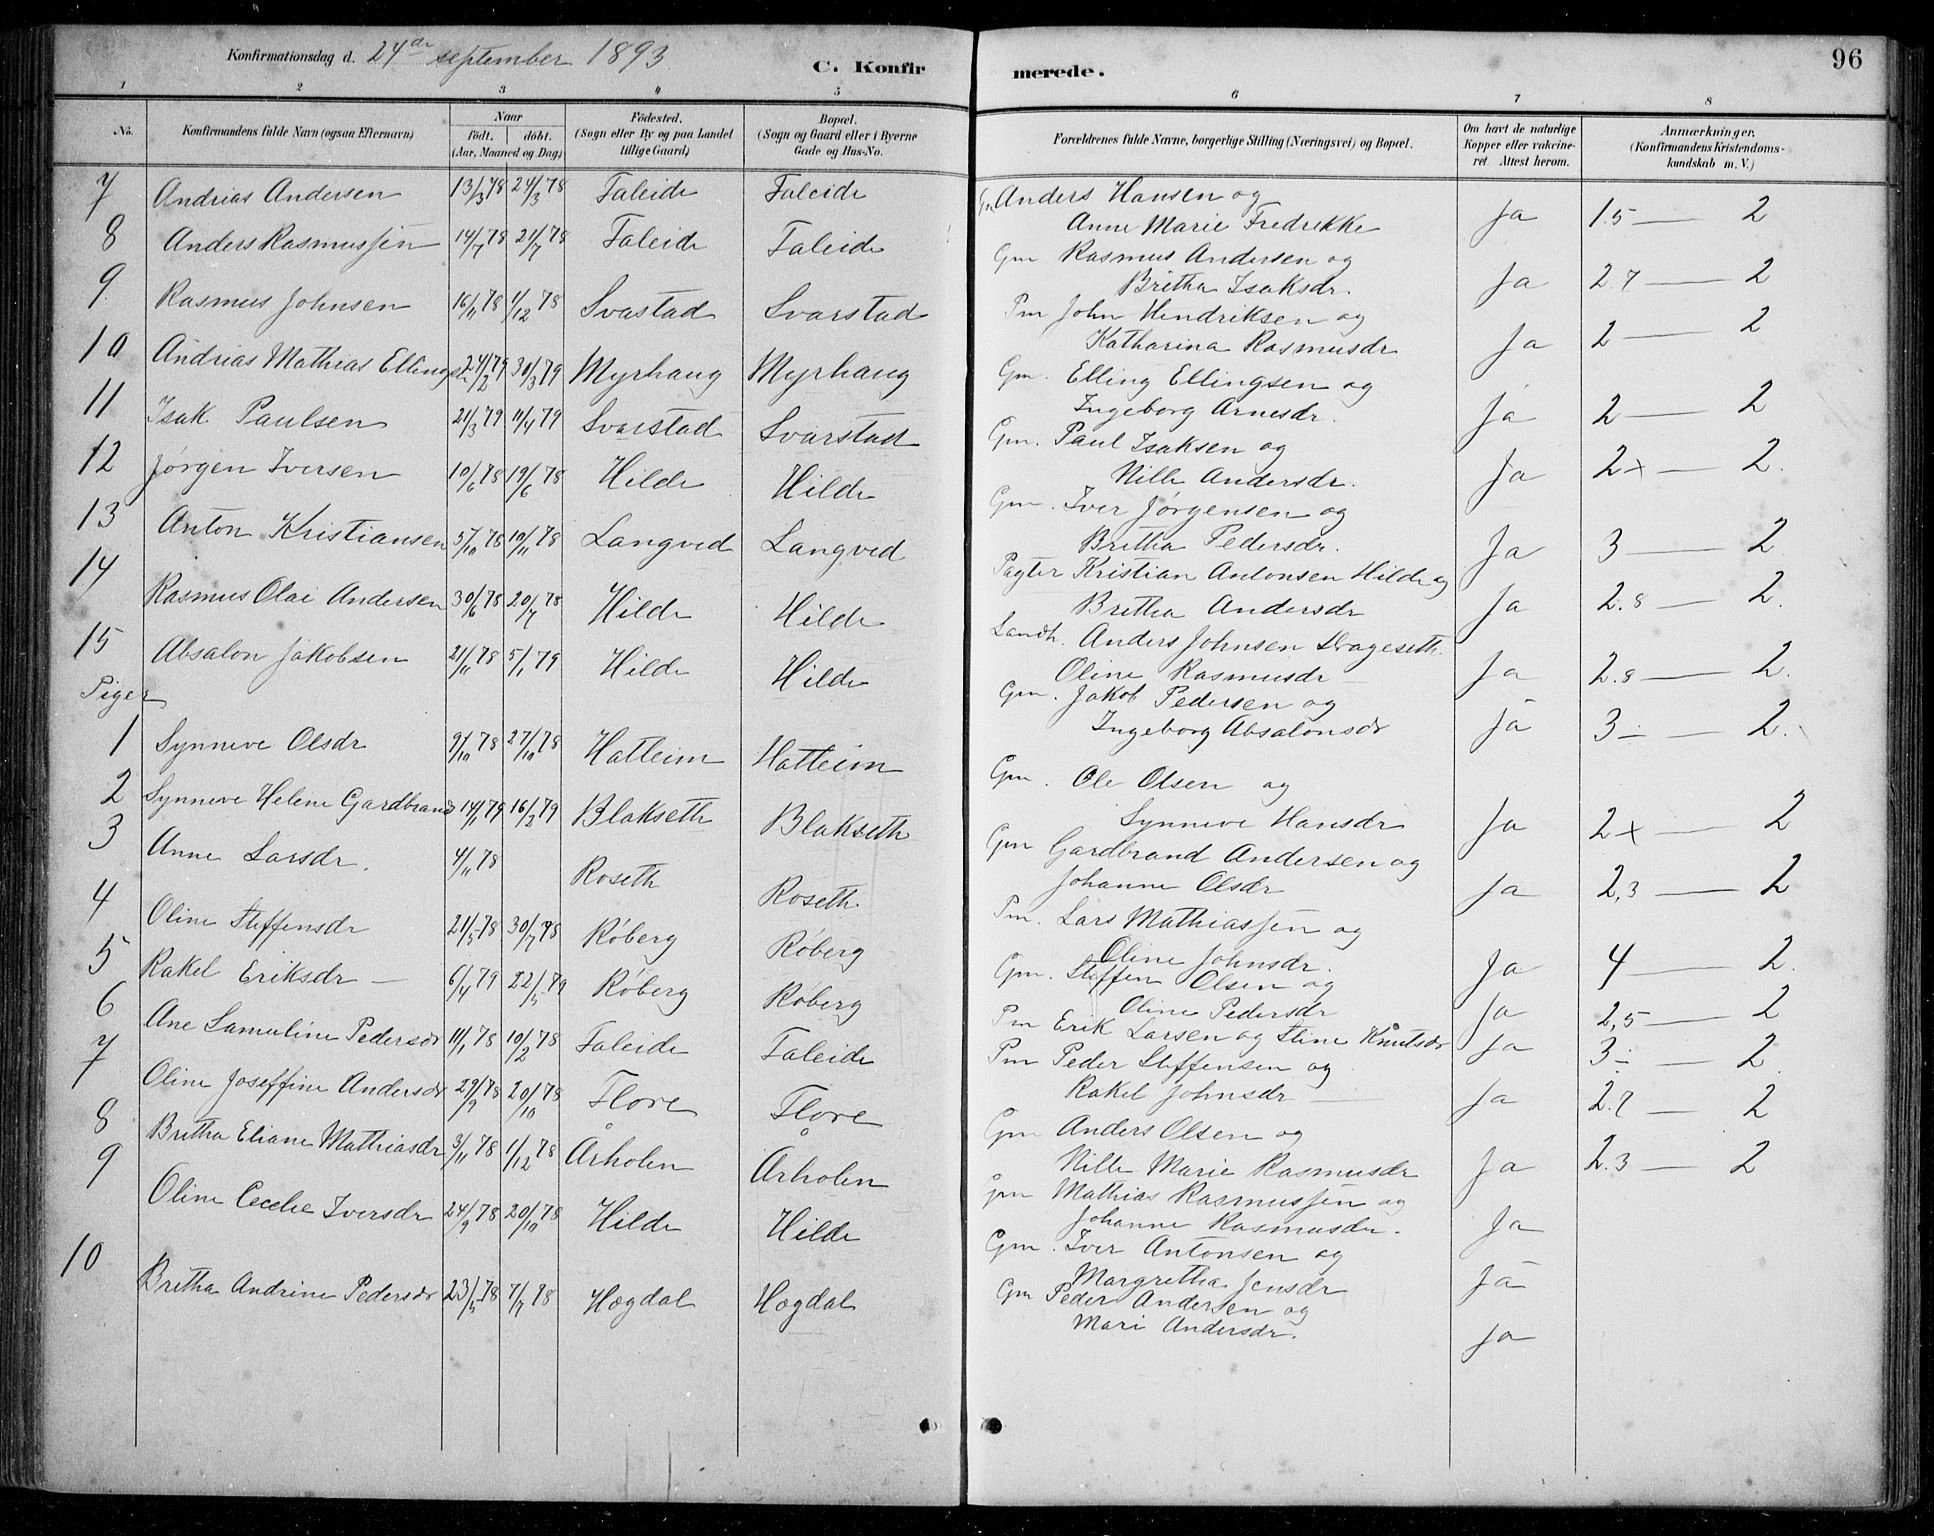 Konfirmationsdag d. 24de september 1893
C. Konfir merede. 96
1 2 3 4 5 6 7 8
No. Konfirmandens fulde Navn (ogsaa Efternavn) Naar födt. döbt. (Aar, Maaned og Dag) Födested. (Sogn eller By og paa Landet tillige Gaard) Bopæl. (Sogn og Gaard eller i Byerne Gade og Hus-No. Forældrenes fulde Navne, borgerlige Stilling (Næringsvei) og Bopæl. Om havt de naturlige Kopper eller vakcineret. Attest herom. Anmærkninger. (Konfirmandens Kristendomskundskab m. V.)
7 Andrias Andersen 13/3 78 24/3 78 Faleide Faleide Gm Anders Hansen og
Anne Marie Fredrikke Ja 1.5 — 2
8 Anders Rasmussen 14/7 78 21/7 78 Faleide Faleide Gm Rasmus Andersen og
Britha Isaksdr. Ja 2.7 — 2
9 Rasmus Johnsen 16/11 78 1/12 78 Svastad Svarstad Pm John Hendriksen og
Katharina Rasmusdr Ja 2 — 2
10 Andrias Mathias Ellingsen 24/2 79 30/3 79 Myrhaug Myrhaug Gm. Elling Ellingsen og
Ingeborg Arnesdr. Ja 2 — 2
11 Isak Paulsen 21/3 79 11/4 79 Svarstad Svarstad Gm. Paul Isaksen og
Nille Andersdr. Ja 2x — 2.
12 Jørgen Iversen 10/6 78 19/6 78 Hilde Hilde Gm. Iver Jørgensen og
Britha Pedersdr. Ja 3 — 2
13 Anton Kristiansen 5/10 78 10/11 78 Langved Langved Pagter Kristian Antonsen Hilde og
Bretha Andersdr Ja 2.8 — 2.
14 Rasmus Olai Andersen 30/6 78 20/7 78 Hilde Hilde Landh. Anders Johnsen Drageseth
Oline Rasmusdr Ja 2.8 — 2.
15 Absalon Jakobsen 21/11 78 5/1 79 Hilde Hilde Gm. Jakob Pedersen og
Ingeborg Absalonsdr Ja 3 ÷ — 2.
Piger
1 Synneve Olsdr 9/10 78 27/10 78 Hatleim Hatleim Gm. Ole Olsen og
Synneve Hansdr Ja 2x — 2
2 Synneve Helene Gardbrandr 14/1 79 16/2 79 Blakseth Blakseth Gm Gardbrand Andersen og
Johanne Olsdr Ja 2,3 — 2
3 Anne Larsdr. 4/11 78 Roseth Roseth Pm. Lars Mathiassen og
Oline Johnsdr. Ja 4 — 2.
4 Oline Steffensdr 21/5 78 30/7 78 Røberg Røberg Gm. Steffen Olsen og
Oline Pedersdr Ja 2,5 — 2
5 Rakel Eriksdr — 6/4 79 22/5 79 Røberg Røberg Pm Erik Larsen og Stine Knutsdr Ja 3 ÷ — 2
6 Ane Samuline Pedersdr 11/1 78 10/2 78 Faleide Faleide Pm Peder Steffensen og
Rakel Johnsdr — Ja 2.7 — 2
7 Oline Joseffine Andersdr 29/9 78 20/10 78 Flore Flore Gm Anders Olsen og
Nille Marie Rasmusdr Ja 2.3 — 2
8 Britha Eliane Mathiasdr 3/11 78 1/12 78 Årholen Årholen Gm Mathias Rasmussen og
Johanne Rasmusdr. Ja
9 Oline Cecelie Iversdr 24/9 78 20/10 78 Hilde Hilde Gm. Iver Antonsen og
Margretha Jensdr Ja
10 Bretha Andrine Pedersdr 23/5 78 7/7 78 Hogdal Hogdal Gm Peder Andersen og
Mari Andersdr. Ja